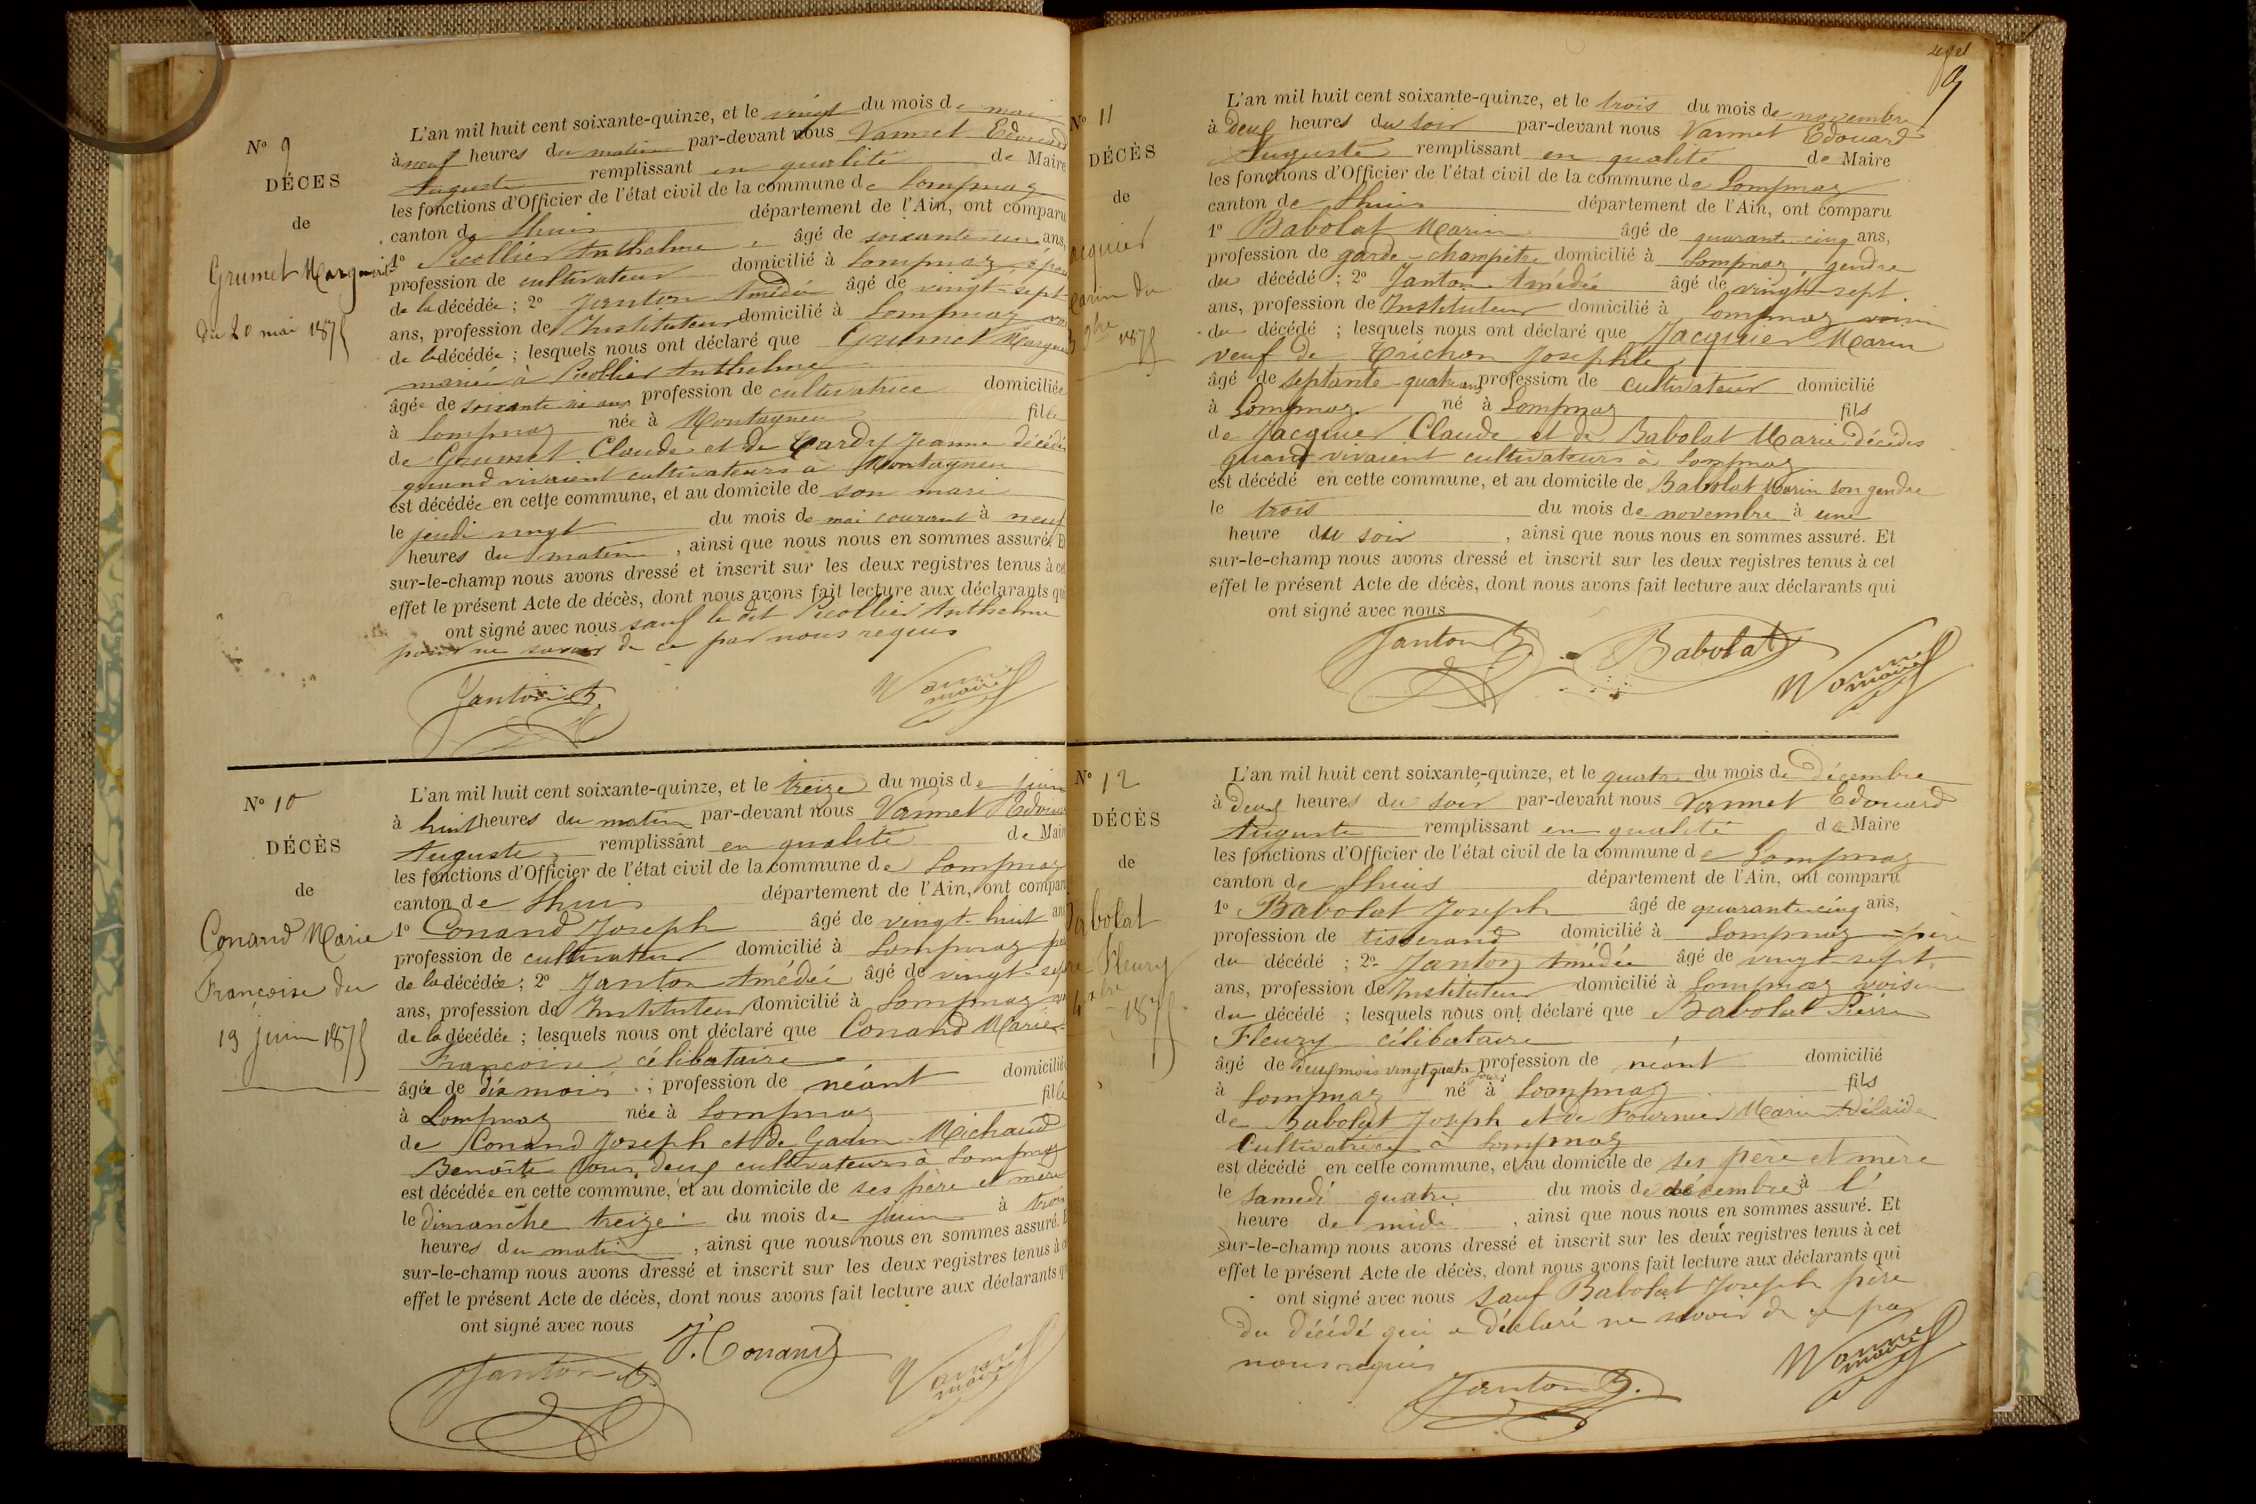 N° 9
DÉCES
de
Grumet Marguerite
du 20 mai 1875
L'an mil huit cent soixante-quinze, et le vingt du mois de mai
à neuf heures du matin par-devant nous Vannet Edouard
Auguste remplissant en qualité de Maire
les fonctions d'Officier de l'état civil de la commune de Lompnaz
canton de Lhuis département de l'Ain, ont comparu
1° Picollier Anthelme âgé de soixante un ans,
profession de cultivateur domicilié à Lompnaz époux
de la décédée ; 2° Janton Amédée âgé de vingt-sept
ans, profession de Instituteur domicilié à Lompnaz
de la décédée ; lesquels nous ont déclaré que Grumet Marguerite
mariée à Picollier Anthelme
âgée de soixante ans profession de cultivatrice domiciliée
à Lompnaz née à Montagneu fille
de Grumet Claude et de Jeanne décédés
quand vivaient cultivateurs à Montagneu
est décédée en cette commune, et au domicile de son mari
le jeudi vingt du mois de mai courant à neuf
heures du matin, ainsi que nous nous en sommes assuré. Et
sur-le-champ nous avons dressé et inscrit sur les deux registres tenus à cet
effet le présent Acte de décès, dont nous avons fait lecture aux déclarants qui
ont signé avec nous sauf le dit Picollier Anthelme
pour ne savoir de ce par nous requis
Janton A. Vannet maire
N° 10
DÉCÈS
de
Conand Marie
Françoise du
13 juin 1875
L'an mil huit cent soixante-quinze, et le treize du mois de juin
à huit heures du matin par-devant nous Vannet Edouard
Auguste remplissant en qualité de Maire
les fonctions d'Officier de l'état civil de la commune de Lompnaz
canton de Lhuis département de l'Ain, ont comparu
1° Conand Joseph âgé de vingt-huit ans
profession de cultivateur domicilié à Lompnaz père
de la décédée ; 2° Janton Amédée âgé de vingt-sept
ans, profession de Instituteur domicilié à Lompnaz
de la décédée ; lesquels nous ont déclaré que Conand Marie
Françoise célibataire
âgée de dix mois ; profession de néant domiciliée
à Lompnaz née à Lompnaz fille
de Conand Joseph et de Michaud
Benoîte tous deux cultivateurs à Lompnaz
est décédée en cette commune, et au domicile de ses père et mère
le dimanche treize du mois de juin à trois
heures du matin, ainsi que nous nous en sommes assuré. Et
sur-le-champ nous avons dressé et inscrit sur les deux registres tenus à cet
effet le présent Acte de décès, dont nous avons fait lecture aux déclarants qui
ont signé avec nous
J. Conand
Janton A. Vannet maire
N° 11
DÉCÈS
de
Jacquier
Marin du
3 9bre 1875
L'an mil huit cent soixante-quinze, et le trois du mois de novembre
à deux heures du soir par-devant nous Vannet Edouard
Auguste remplissant en qualité de Maire
les fonctions d'Officier de l'état civil de la commune de Lompnaz
canton de Lhuis département de l'Ain, ont comparu
1° Babolat Marin âgé de quarante-cinq ans,
profession de garde-champêtre domicilié à Lompnaz, gendre
du décédé ; 2° Janton Amédée âgé de vingt-sept
ans, profession de Instituteur domicilié à Lompnaz voisin
du décédé ; lesquels nous ont déclaré que Jacquier Marin
veuf de Trichon Josephte
âgé de septante-quatre ans profession de cultivateur domicilié
à Lompnaz né à Lompnaz fils
de Jacquier Claude et de Babolat Marie décédés
quand vivaient cultivateurs à Lompnaz
est décédé en cette commune, et au domicile de Babolat Marin son gendre
le trois du mois de novembre à une
heure du soir, ainsi que nous nous en sommes assuré. Et
sur-le-champ nous avons dressé et inscrit sur les deux registres tenus à cet
effet le présent Acte de décès, dont nous avons fait lecture aux déclarants qui
ont signé avec nous
Janton A. Babolat Vannet maire
N° 12
DÉCÈS
de
Babolat
Pierre Fleury
4 Xbre 1875
L'an mil huit cent soixante-quinze, et le quatre du mois de Décembre
à deux heures du soir par-devant nous Vannet Edouard
Auguste remplissant en qualité de Maire
les fonctions d'Officier de l'état civil de la commune de Lompnaz
canton de Lhuis département de l'Ain, ont comparu
1° Babolat Joseph âgé de quarante-cinq ans,
profession de tisserand domicilié à Lompnaz père
du décédé ; 2° Janton Amédée âgé de vingt-sept
ans, profession de Instituteur domicilié à Lompnaz voisin
du décédé ; lesquels nous ont déclaré que Babolat Pierre
Fleury célibataire
âgé de deux mois vingt quatre jours profession de néant domicilié
à Lompnaz né à Lompnaz fils
de Babolat Joseph et de Fournier Marie Adélaïde
Cultivatrice à Lompnaz
est décédé en cette commune, et au domicile de ses père et mère
le samedi quatre du mois de décembre à l'
heure de midi, ainsi que nous nous en sommes assuré. Et
sur-le-champ nous avons dressé et inscrit sur les deux registres tenus à cet
effet le présent Acte de décès, dont nous avons fait lecture aux déclarants qui
ont signé avec nous sauf Babolat Joseph père
du décédé qui a déclaré ne savoir de ce par
nous requis
Janton A. Vannet maire